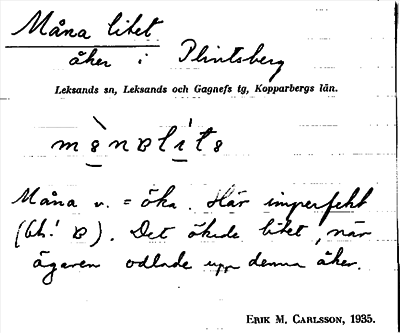 Måna litet
åker i Plintsberg
Leksands sn, Leksands och Gagnefs tg, Kopparbergs län.
Måna v. = öka. Här imperfekt
(bh! ɒ). Det ökede litet, när
ägaren odlade upp denna åker.
ERIK M. CARLSSON, 1935.